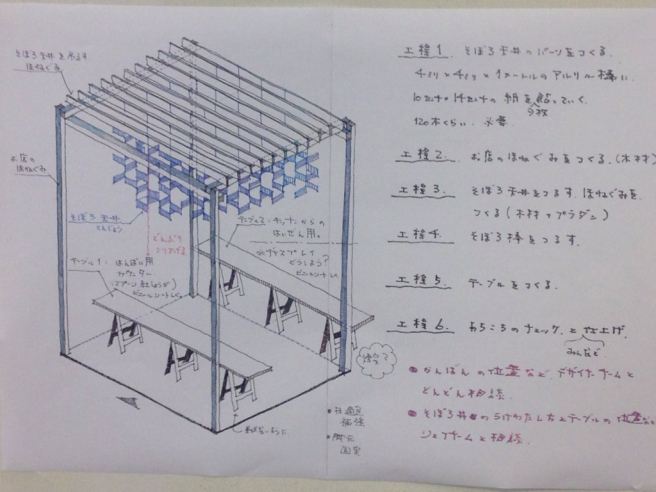 そぼろ天井を吊るす
ほねぐみ
お店の
ほねぐみ
そぼろ天井
どんぶり
テーブル2：キッチンからの
はいぜん用。
ディスプレイ
どうしよう？
テーブル1：はんばい用
カウンター
工程1. そぼろ天井のパーツをつくる。
4ミリ×4ミリ×1メートルのアクリル棒に
10センチ×14センチの紙を貼っていく。
120本くらい 必要
工程2. お店のほねぐみをつくる。(木材)
工程3. そぼろ天井をつるす、ほねぐみを
つくる(木材+プラダン)
工程4. そぼろ棒をつるす。
工程5. テーブルをつくる。
工程6. あちこちのチェック。と仕上げ。
みんなで
かんばんの位置など、デザイナーチームと
どんどん相談。
そぼろ丼のうけわたし方とテーブルの位置など
シェフチームと相談。